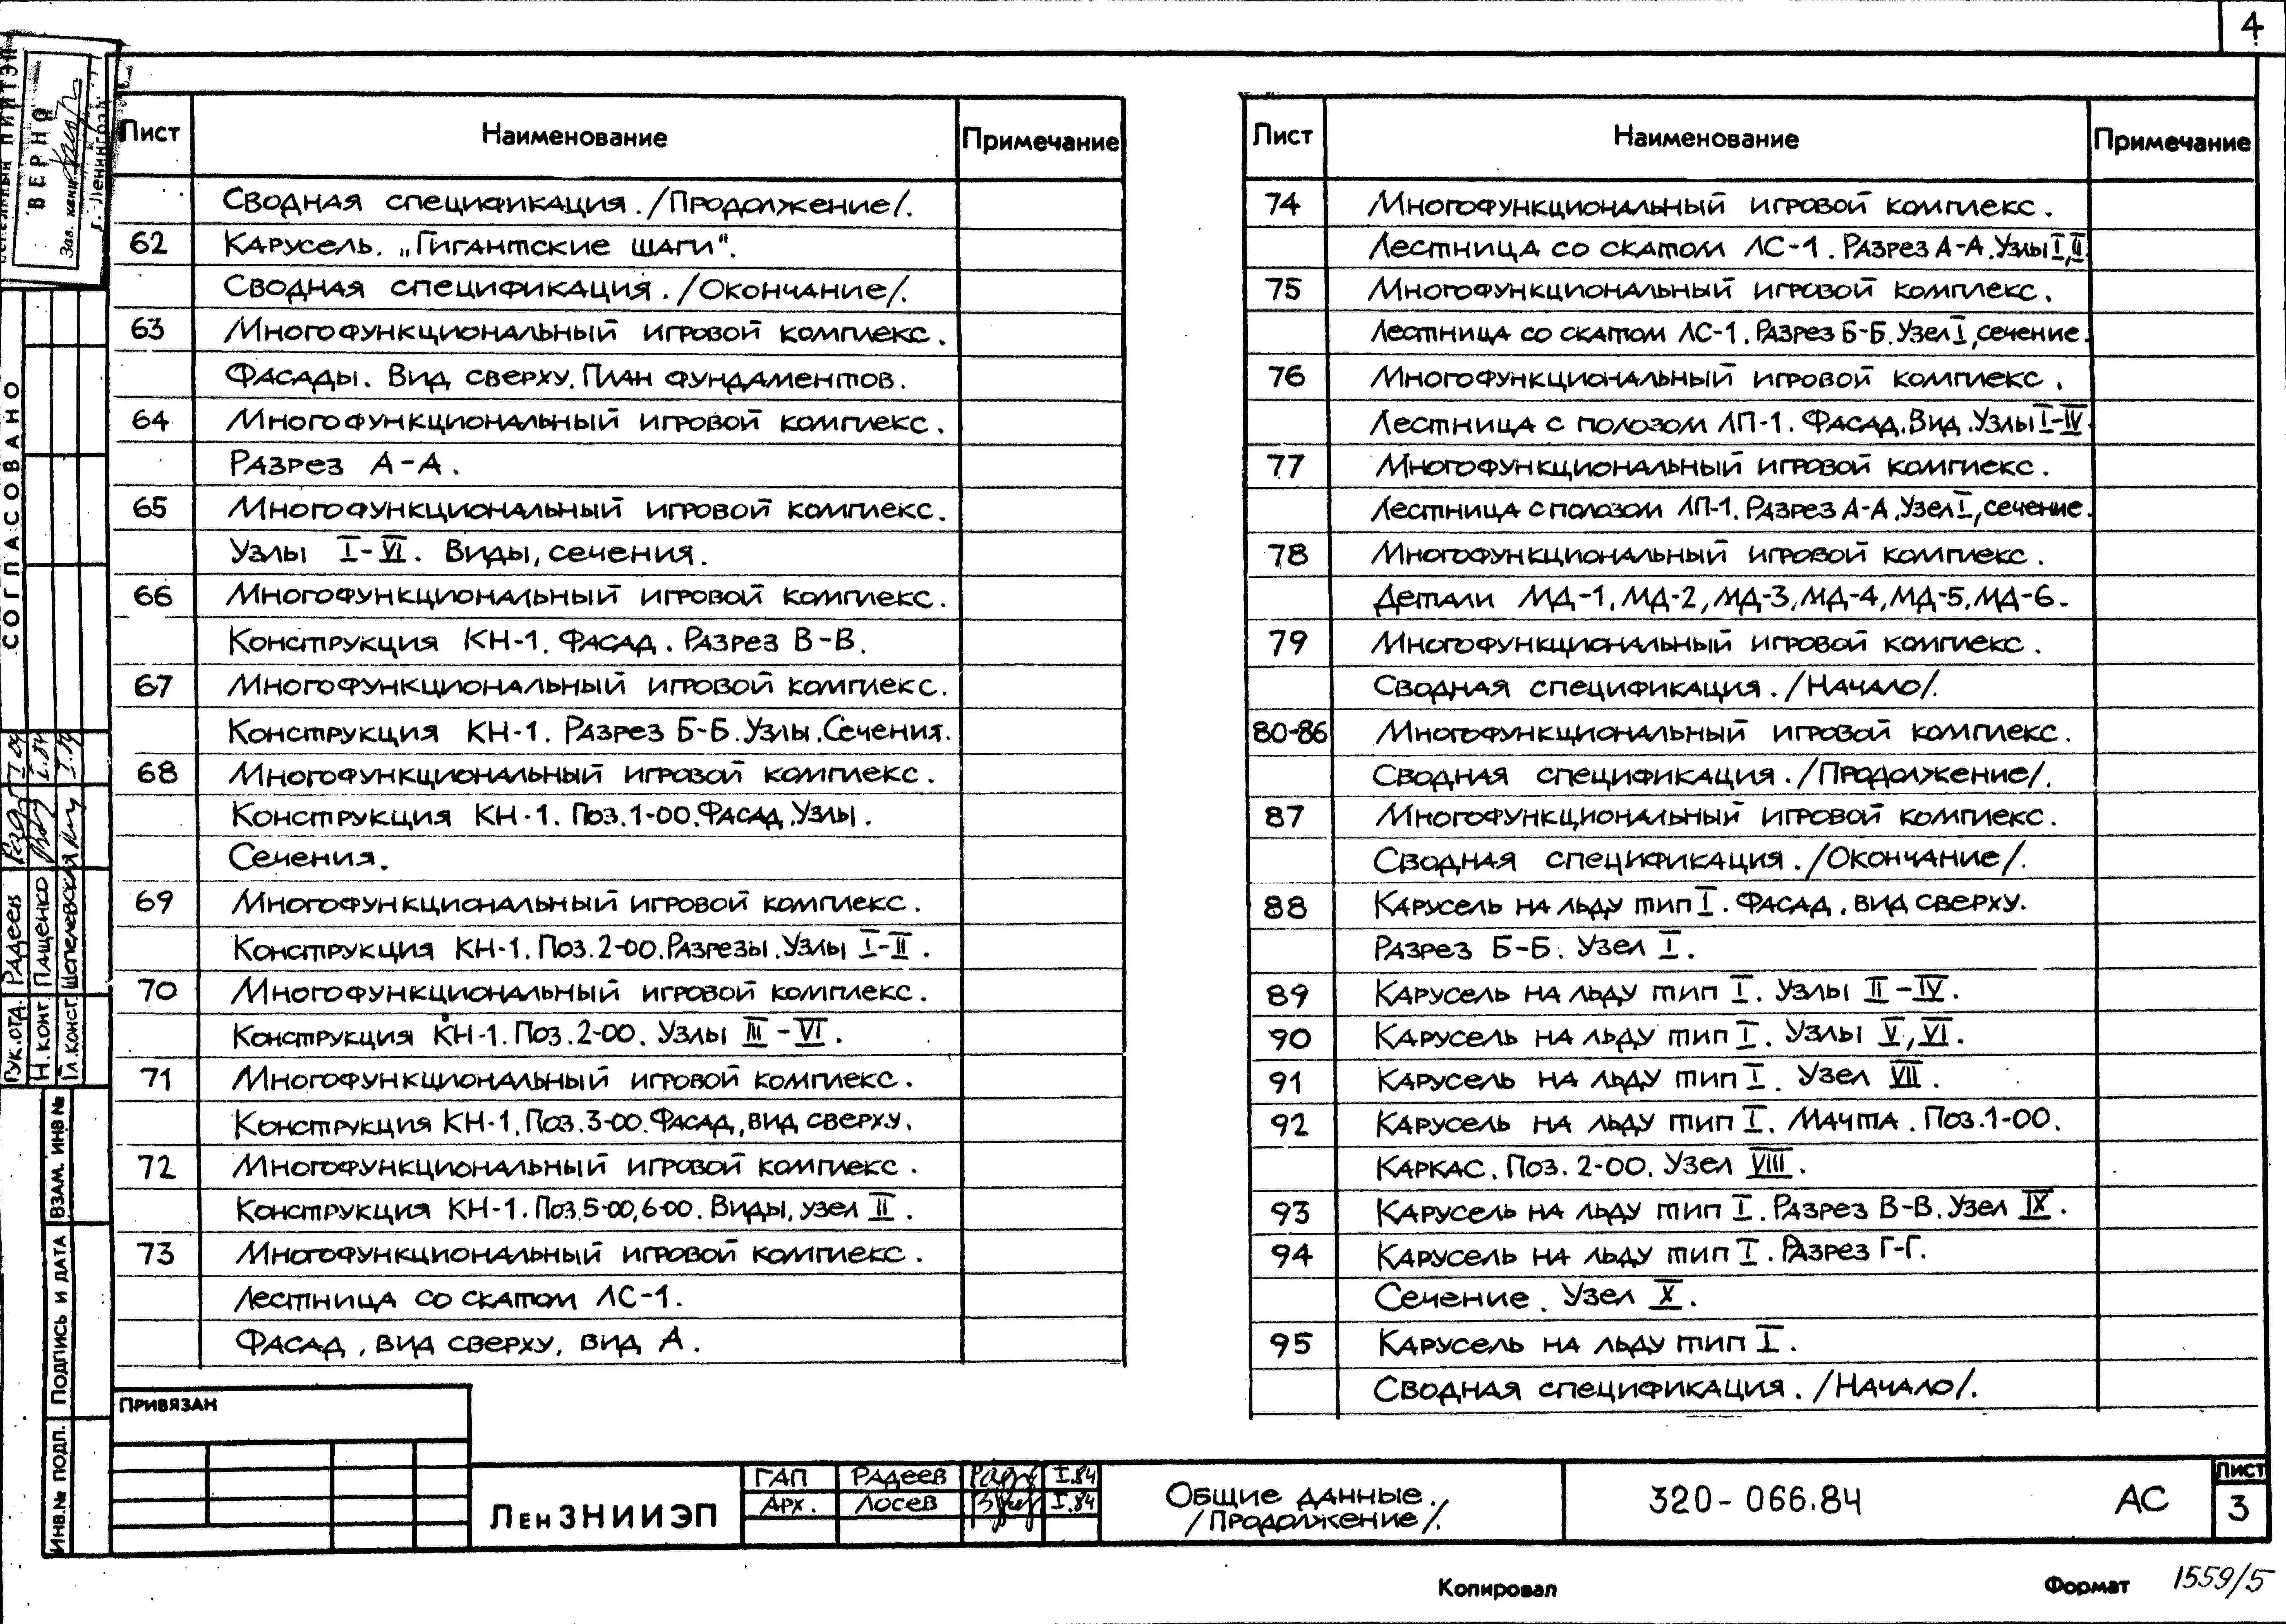 4
Лист Наименование Примечание
Сводная спецификация. /Продолжение/.
62 Карусель. „Гигантские шаги".
Сводная спецификация. /Окончание/.
63 Многофункциональный игровой комплекс.
Фасады. Вид сверху. План фундаментов.
64 Многофункциональный игровой комплекс.
Разрез А-А.
65 Многофункциональный игровой комплекс.
Узлы I-VI. Виды, сечения.
66 Многофункциональный игровой комплекс.
Конструкция КН-1. Фасад. Разрез В-В.
67 Многофункциональный игровой комплекс.
Конструкция КН-1. Разрез Б-Б. Узлы. Сечения.
68 Многофункциональный игровой комплекс.
Конструкция КН-1. Поз. 1-00. Фасад. Узлы.
Сечения.
69 Многофункциональный игровой комплекс.
Конструкция КН-1. Поз. 2-00. Разрезы. Узлы I-II.
70 Многофункциональный игровой комплекс.
Конструкция КН-1. Поз. 2-00. Узлы III-VI.
71 Многофункциональный игровой комплекс.
Конструкция КН-1. Поз. 3-00. Фасад, вид сверху.
72 Многофункциональный игровой комплекс.
Конструкция КН-1. Поз. 5-00, 6-00. Виды, узел II.
73 Многофункциональный игровой комплекс.
Лестница со скатом ЛС-1.
Фасад, вид сверху, вид А.
Лист Наименование Примечание
74 Многофункциональный игровой комплекс.
Лестница со скатом ЛС-1. Разрез А-А. Узлы I, II.
75 Многофункциональный игровой комплекс.
Лестница со скатом ЛС-1. Разрез Б-Б. Узел I, сечение.
76 Многофункциональный игровой комплекс.
Лестница с полозом ЛП-1. Фасад. Вид. Узлы I-IV.
77 Многофункциональный игровой комплекс.
Лестница с полозом ЛП-1. Разрез А-А. Узел I, сечение.
78 Многофункциональный игровой комплекс.
Детали МД-1, МД-2, МД-3, МД-4, МД-5, МД-6.
79 Многофункциональный игровой комплекс.
Сводная спецификация. /Начало/.
80-86 Многофункциональный игровой комплекс.
Сводная спецификация. /Продолжение/.
87 Многофункциональный игровой комплекс.
Сводная спецификация. /Окончание/.
88 Карусель на льду тип I. Фасад, вид сверху.
Разрез Б-Б. Узел I.
89 Карусель на льду тип I. Узлы II-IV.
90 Карусель на льду тип I. Узлы V, VI.
91 Карусель на льду тип I. Узел VII.
92 Карусель на льду тип I. Мачта. Поз. 1-00.
Каркас. Поз. 2-00. Узел VIII.
93 Карусель на льду тип I. Разрез В-В. Узел IX.
94 Карусель на льду тип I. Разрез Г-Г.
Сечение. Узел X.
95 Карусель на льду тип I.
Сводная спецификация. /Начало/.
ВЕРНО
Зав. канц.
СОГЛАСОВАНО
Рук. отд. Радеев
Н. конт. Пащенко I.84
Гл. конст. Шепелевская I.84
Взам. инв №
Подпись и дата
Инв. № подл.
Привязан
ЛенЗНИИЭП
ГАП Радеев I.84
Арх. Лосев I.84
Общие данные.
/Продолжение/.
320-066.84 АС
Лист
3
Копировал Формат 1559/5